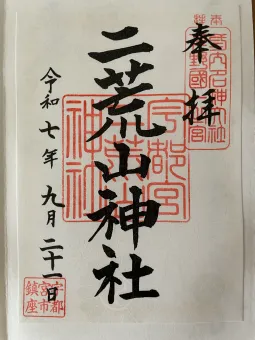 奉拝
二荒山神社
令和七年九月二十一日
宇都宮
二荒山
神社
宇都宮市鎮座